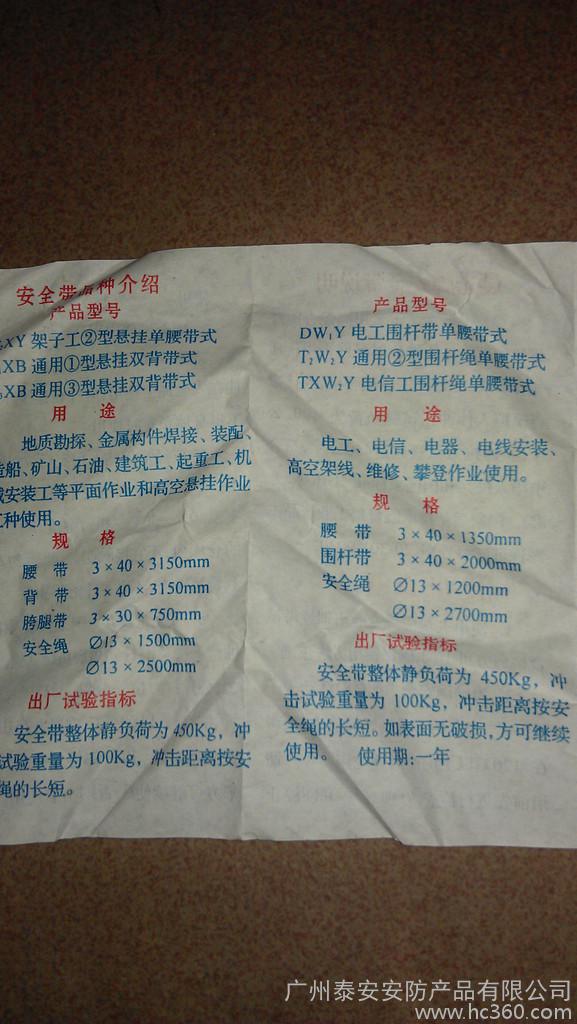 安全带品种介绍
产品型号
XY 架子工②型悬挂单腰带式
XB 通用①型悬挂双背带式
XB 通用③型悬挂双背带式
用 途
地质勘探、金属构件焊接、装配、
造船、矿山、石油、建筑工、起重工、机
械安装工等平面作业和高空悬挂作业
工种使用。
规 格
腰 带 3×40×3150mm
背 带 3×40×3150mm
胯腿带 3×30×750mm
安全绳 ∅13×1500mm
∅13×2500mm
出厂试验指标
安全带整体静负荷为450Kg，冲
试验重量为100Kg，冲击距离按安
绳的长短。
产品型号
DW₁Y 电工围杆带单腰带式
T₂W₂Y 通用②型围杆绳单腰带式
TXW₂Y 电信工围杆绳单腰带式
用 途
电工、电信、电器、电线安装、
高空架线、维修、攀登作业使用。
规 格
腰 带 3×40×1350mm
围杆带 3×40×2000mm
安全绳 ∅13×1200mm
∅13×2700mm
出厂试验指标
安全带整体静负荷为 450Kg，冲
击试验重量为 100Kg，冲击距离按安
全绳的长短。如表面无破损，方可继续
使用。 使用期:一年
广州泰安安防产品有限公司
www.hc360.com